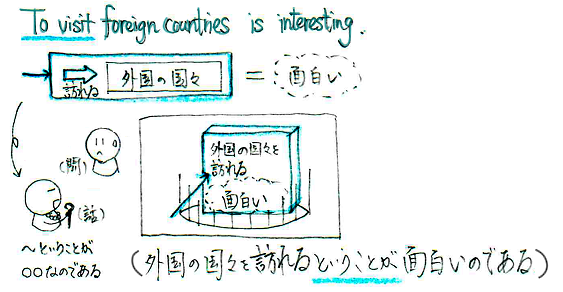 To visit foreign countries is interesting.
訪れる 外国の国々 = 面白い
(聞)
(話)
外国の国々を
訪れる
面白い
〜ということが
○○なのである
(外国の国々を訪れるということが面白いのである)